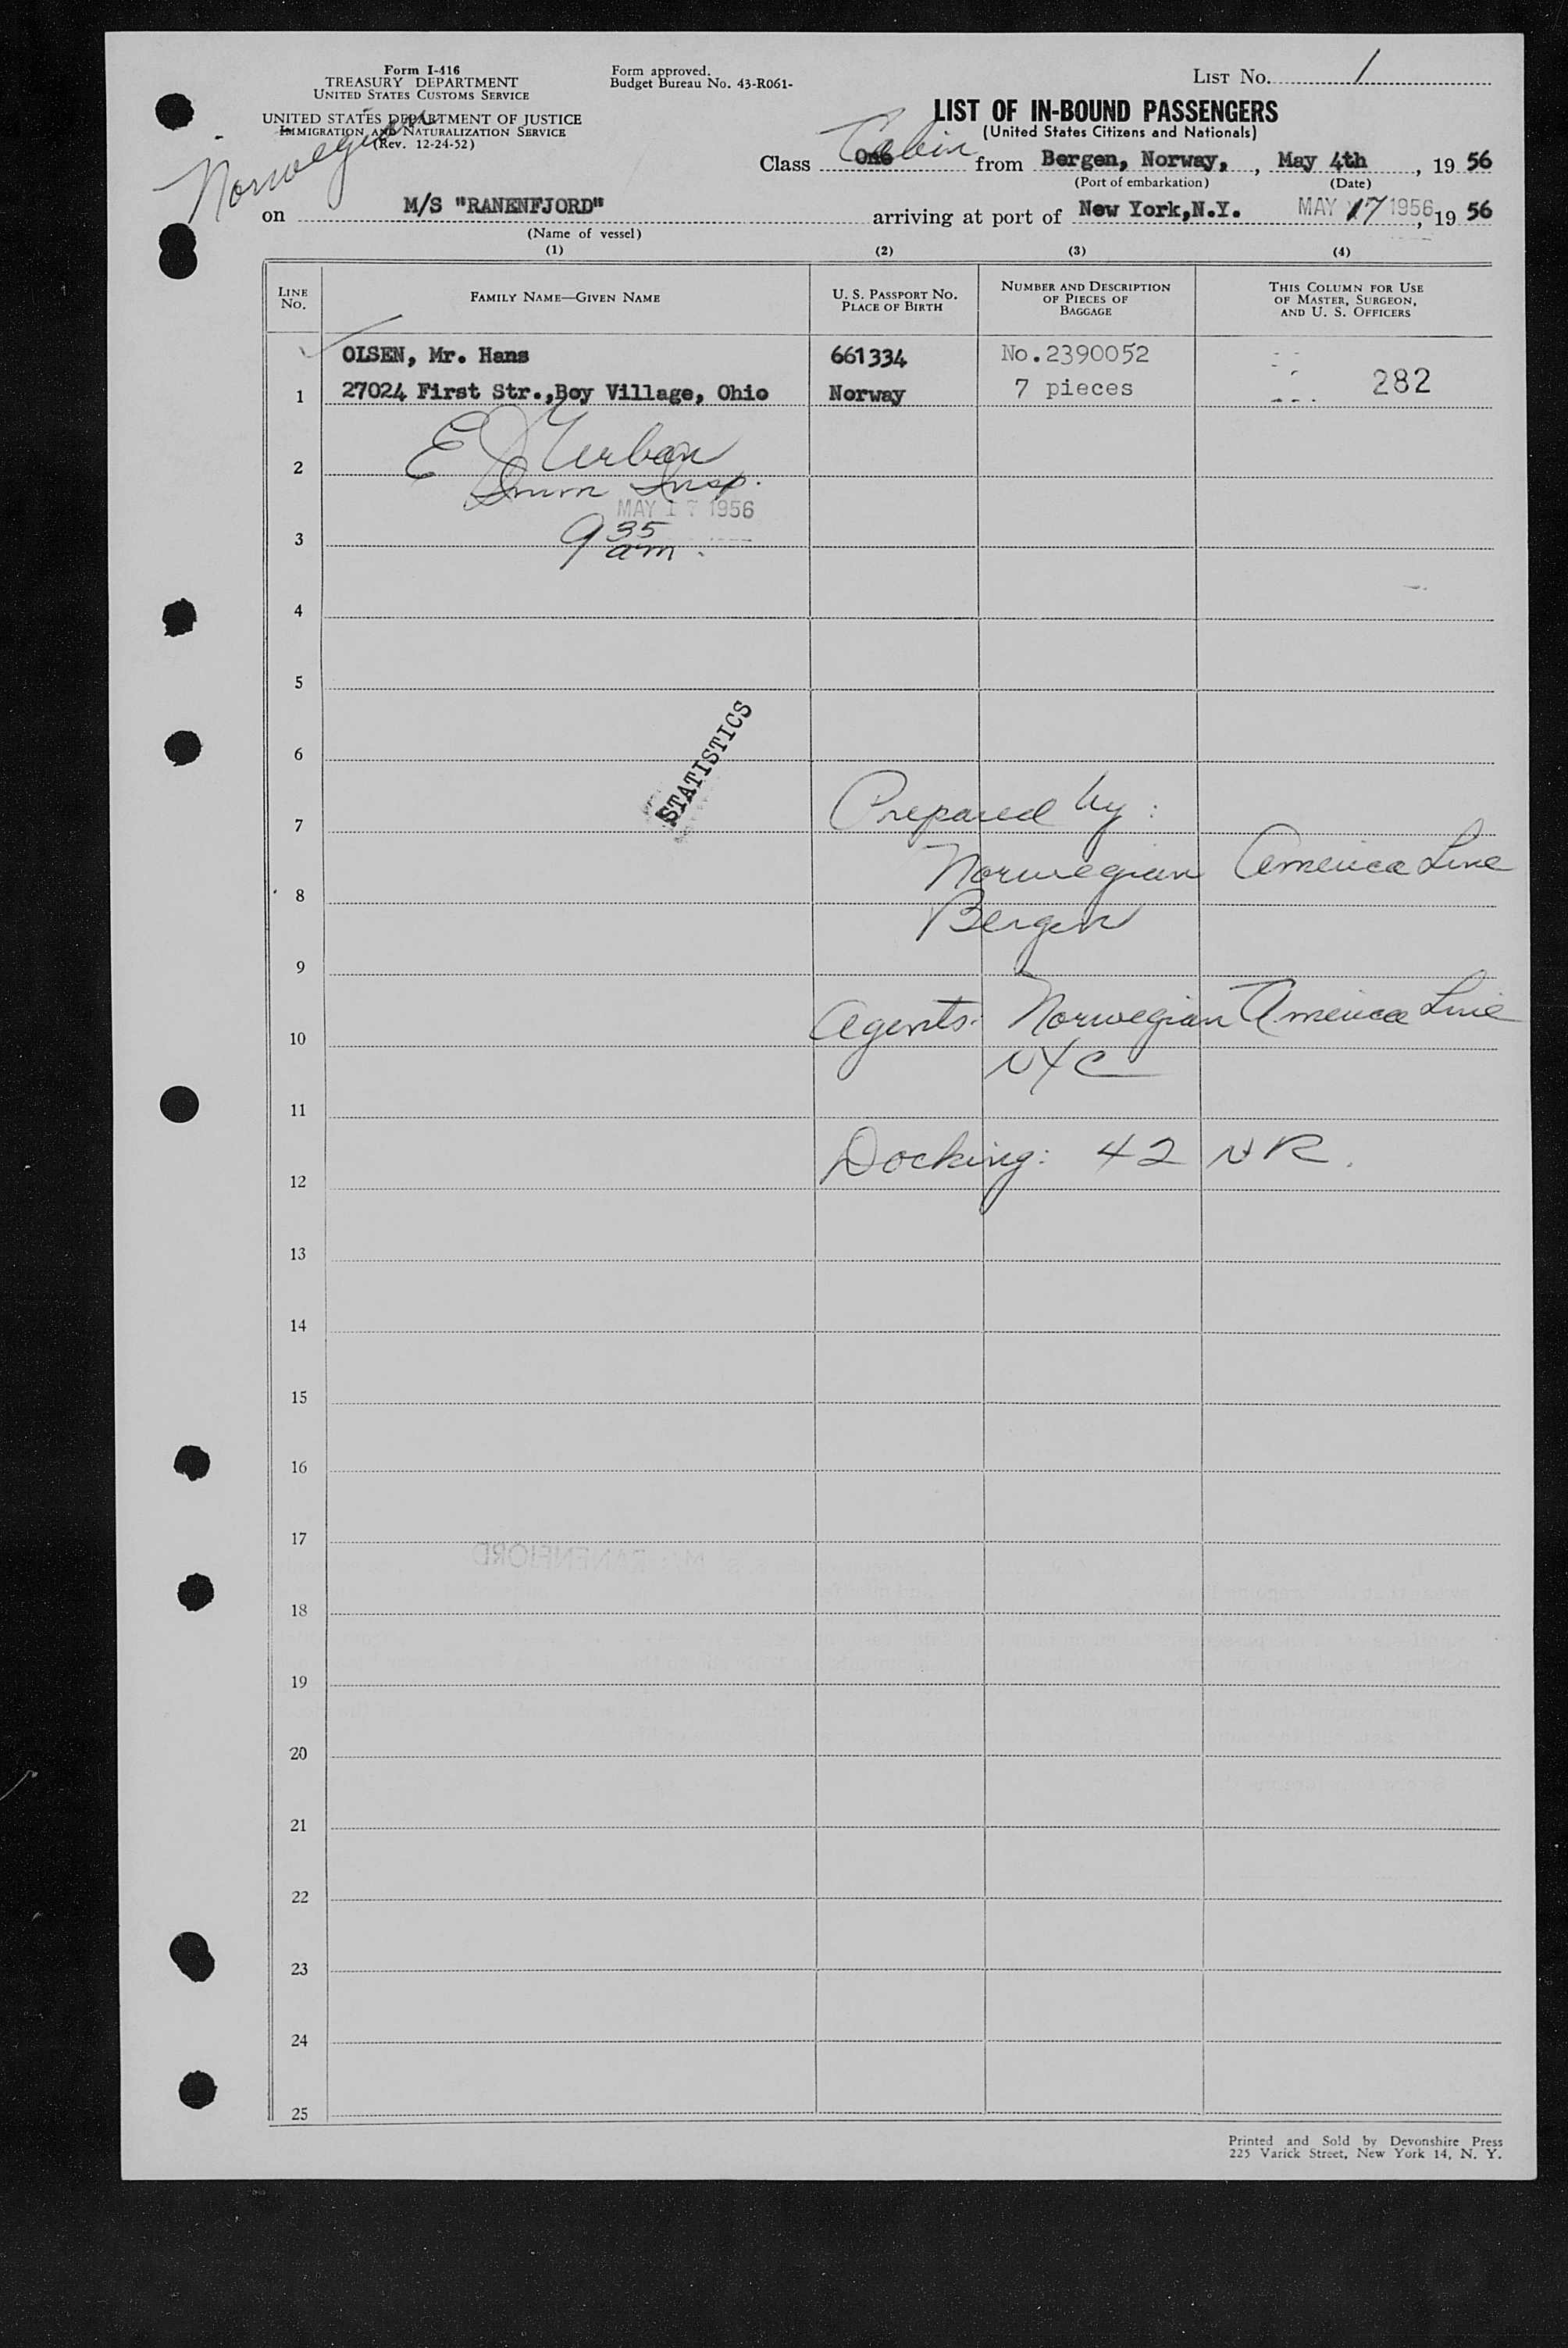 Form I-416
TREASURY DEPARTMENT
UNITED STATES CUSTOMS SERVICE
UNITED STATES DEPARTMENT OF JUSTICE
IMMIGRATION AND NATURALIZATION SERVICE
(Rev. 12-24-52)
Norwegian
Form approved.
Budget Bureau No. 43-R061-
LIST NO. 1
LIST OF IN-BOUND PASSENGERS
(United States Citizens and Nationals)
Class One Cabin from Bergen, Norway, , May 4th , 19 56
(Port of embarkation) (Date)
on M/S "RANENFJORD" arriving at port of New York,N.Y. MAY 17 1956, 19 56
(Name of vessel)
(1) (2) (3) (4)
LINE NO. FAMILY NAME—GIVEN NAME U. S. PASSPORT NO. PLACE OF BIRTH NUMBER AND DESCRIPTION OF PIECES OF BAGGAGE THIS COLUMN FOR USE OF MASTER, SURGEON, AND U. S. OFFICERS
OLSEN, Mr. Hans 661334 No.2390052
1 27024 First Str.,Boy Village, Ohio Norway 7 pieces 282
E J Urban
2
Imm Insp.
MAY 17 1956
9 35 am.
3
4
5
6
STATISTICS
7 Prepared by:
8 Norwegian America Line
Bergen
9
10 Agents: Norwegian America Line
NYC
11
12 Docking: 42 NR.
13
14
15
16
17
M/S RANENFJORD
18
19
20
21
22
23
24
25
Printed and Sold by Devonshire Press
225 Varick Street, New York 14, N. Y.